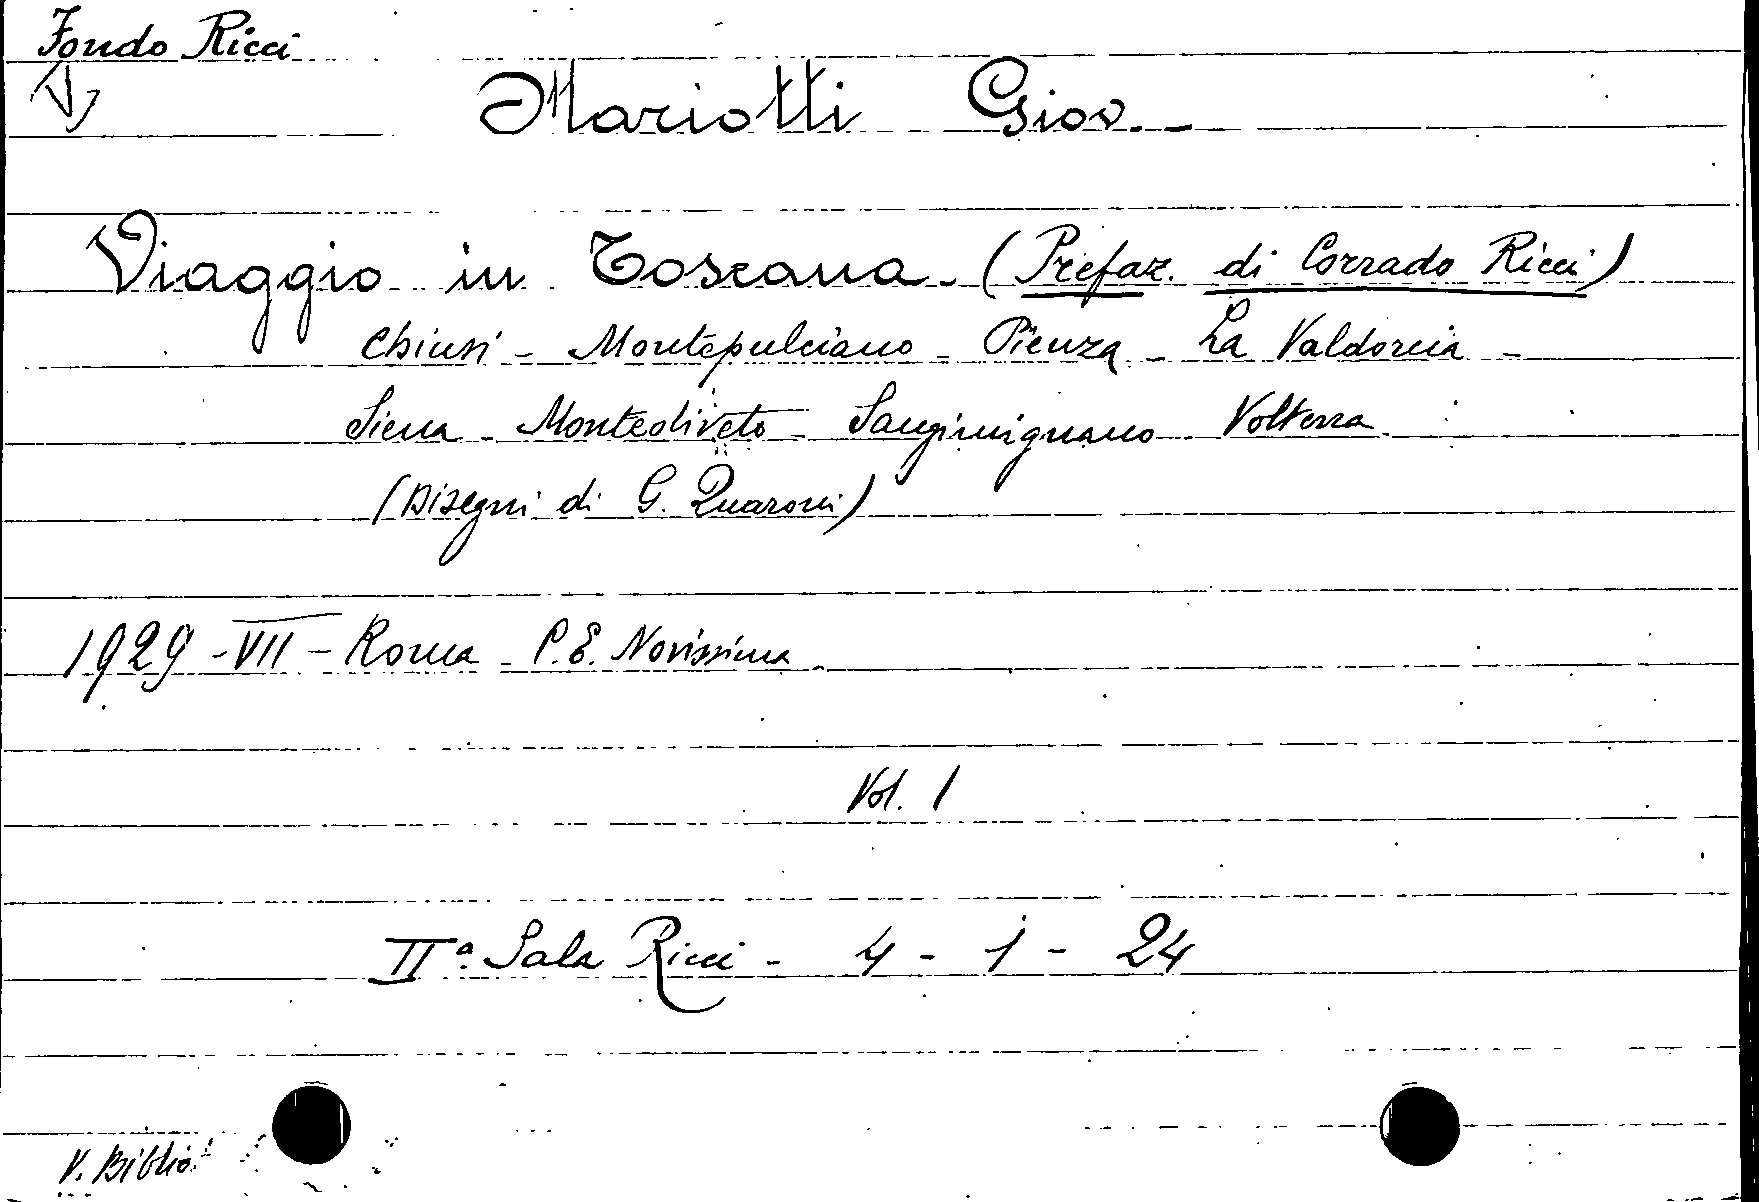 Fondo Ricci
Mariotti Giov. -
Viaggio in Toscana. (Prefaz. di Corrado Ricci)
Chiusi - Montepulciano - Pienza - La Valdorcia -
Siena - Monteoliveto - Sangimignano - Volterra
(Disegni di G. Quaroni)
1929 - VII - Roma - P.E. Novissima.
Vol. 1
IIª Sala Ricci - 4 - 1 - 24
V. Biblio